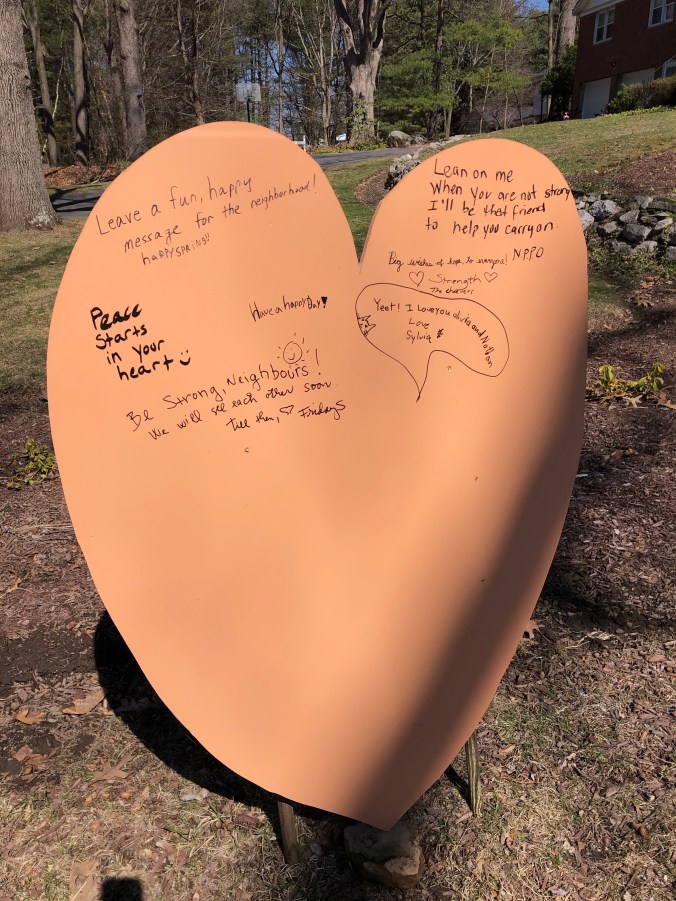 Leave a fun, happy
message for the neighborhood!
happy SPRING!!
Lean on me
When you are not strong
I'll be that friend
to help you carry on.
NPPO
Big wishes of hope to everyone!
Strength
The
Peace
Starts
in your
heart
Have a happy Day!
Yeet! I Love you olivia and Nathan
Love
Sylvia
Be Strong, Neighbours!
We will see each other soon.
till then, Fridays